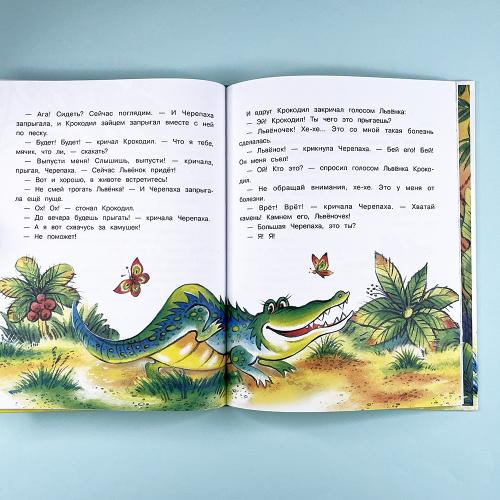 — Ага! Сидеть? Сейчас поглядим. — И Черепаха
запрыгала, и Крокодил зайцем запрыгал вместе с ней
по песку.
— Будет! Будет! — кричал Крокодил. — Что я тебе,
мячик, что ли, — скакать?
— Выпусти меня! Слышишь, выпусти! — кричала,
прыгая, Черепаха. — Сейчас Львёнок придёт!
— Вот и хорошо, в животе встретитесь!
— Не смей трогать Львёнка! — И Черепаха запрыга-
ла ещё пуще.
— Ох! Ох! — стонал Крокодил.
— До вечера будешь прыгать! — кричала Черепаха.
— А я вот схвачусь за камушек!
— Не поможет!
И вдруг Крокодил закричал голосом Львёнка:
— Эй! Крокодил! Ты чего это прыгаешь?
— Львёночек! Хе-хе... Это со мной такая болезнь
сделалась.
— Львёнок! — крикнула Черепаха. — Бей его! Бей!
Он меня съел!
— Ой! Кто это? — спросил голосом Львёнка Кроко-
дил.
— Не обращай внимания, хе-хе. Это у меня от
болезни.
— Врёт! Врёт! — кричала Черепаха. — Хватай
камень! Камнем его, Львёночек!
— Большая Черепаха, это ты?
— Я! Я!